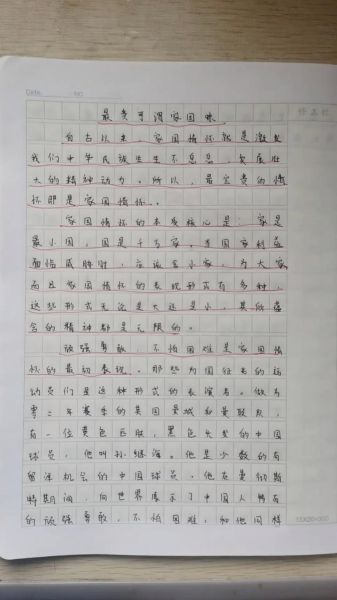 Date. NO.
最贵可谓家国味
自古以来，家国情怀就是激发
我们中华民族生生不息，发展壮
大的精神动力。所以，最宝贵的情
怀那是家国情怀。
家国情怀的本质核心是：家是
最小国，国是千万家。当国家利益
面临威胁时，应该舍小家，为大家
而且家国情怀的表现形式有多种，
这些形式无论是大还是小，其所蕴
含的精神都是无限的。
顽强勇敢，不怕困难是家国情
怀的最初表现。那些为国征战的运
动员们是这种形式的表演者。做为
零二年赛季的英国曼城和曼联队，
有一位黄色皮肤，黑色头发的中国
球员，他叫孙继海。他是少数的有
留洋机会的中国球员。他在曼彻斯
特期间，向世界展示了中国人特有
的顽强勇敢，不怕困难，和他同样
15×20=300